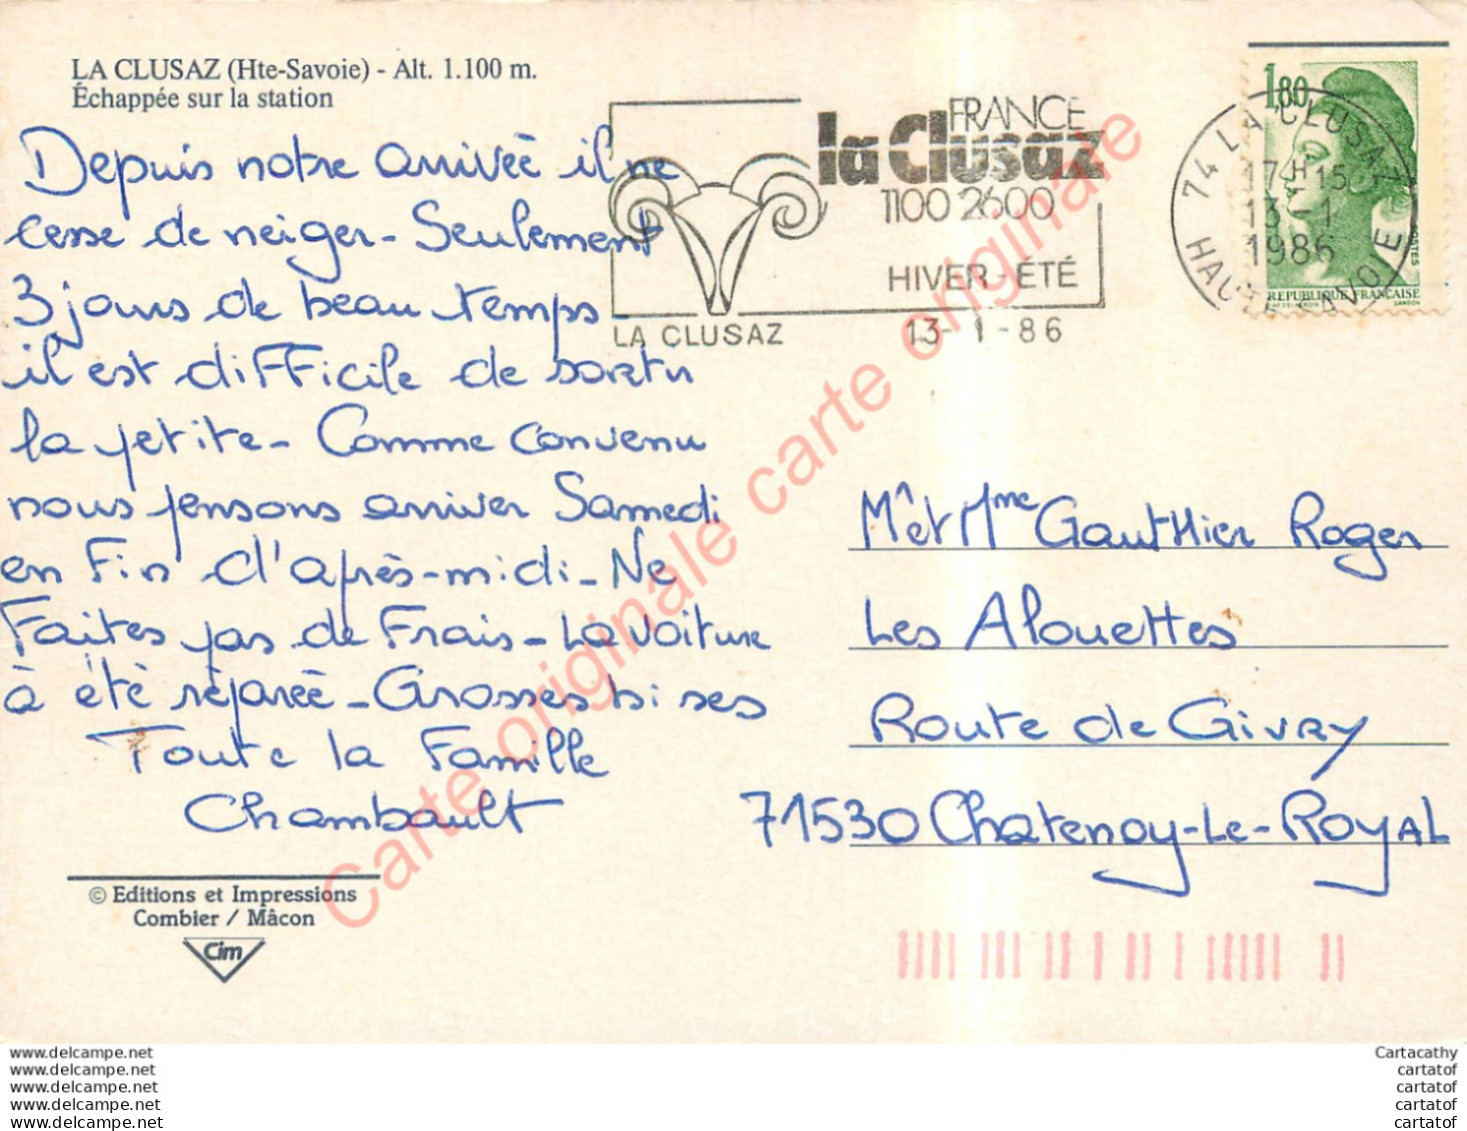 LA CLUSAZ (Hte-Savoie) - Alt. 1.100 m.
Échappée sur la station
Depuis notre arrivée il ne
cesse de neiger - Seulement
3 jours de beau temps
il est difficile de sortir
la petite - Comme convenu
nous pensons arriver Samedi
en fin d'après-midi - Ne
Faites pas de Frais - La voiture
à été réparée - Grosses bises
Toute la Famille
Chambault
© Editions et Impressions
Combier / Mâcon
Cim
FRANCE
la Clusaz
1100 2600
HIVER - ÉTÉ
LA CLUSAZ 13-1-86
74 LA CLUSAZ
17H15
13-1
1986
HAUTE SAVOIE
1,80
POSTES
REPUBLIQUE FRANÇAISE
GANDON
Mr et Mme Gauthier Roger
Les Alouettes
Route de Givry
71530 Chatenoy-Le-Royal
Carte originale carte originale
www.delcampe.net
www.delcampe.net
www.delcampe.net
www.delcampe.net
www.delcampe.net
Cartacathy
cartatof
cartatof
cartatof
cartatof